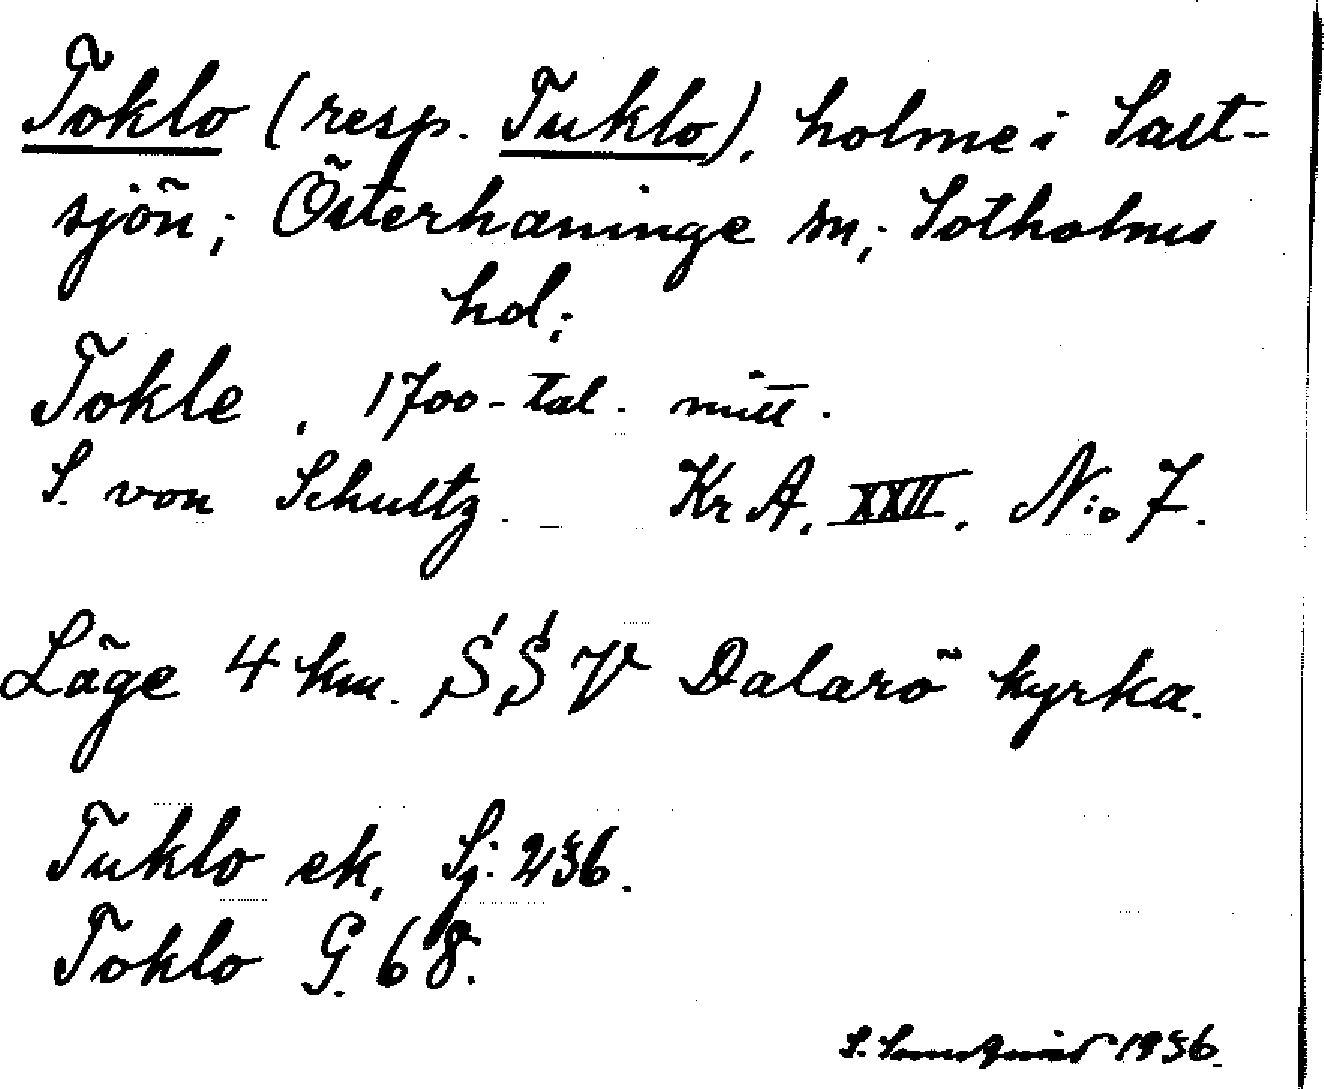 Toklo (resp. Tuklo), holme i Salt-
sjön; Österhaninge sn; Sotholms
hd;
Tokle, 1700-tal. mitt.
S. von Schultz. – Kr A. XXII. N:o 7.
Läge 4 km. SSV Dalarö kyrka.
Tuklo ek. Sj: 236.
Toklo G. 68.
S. 1936.